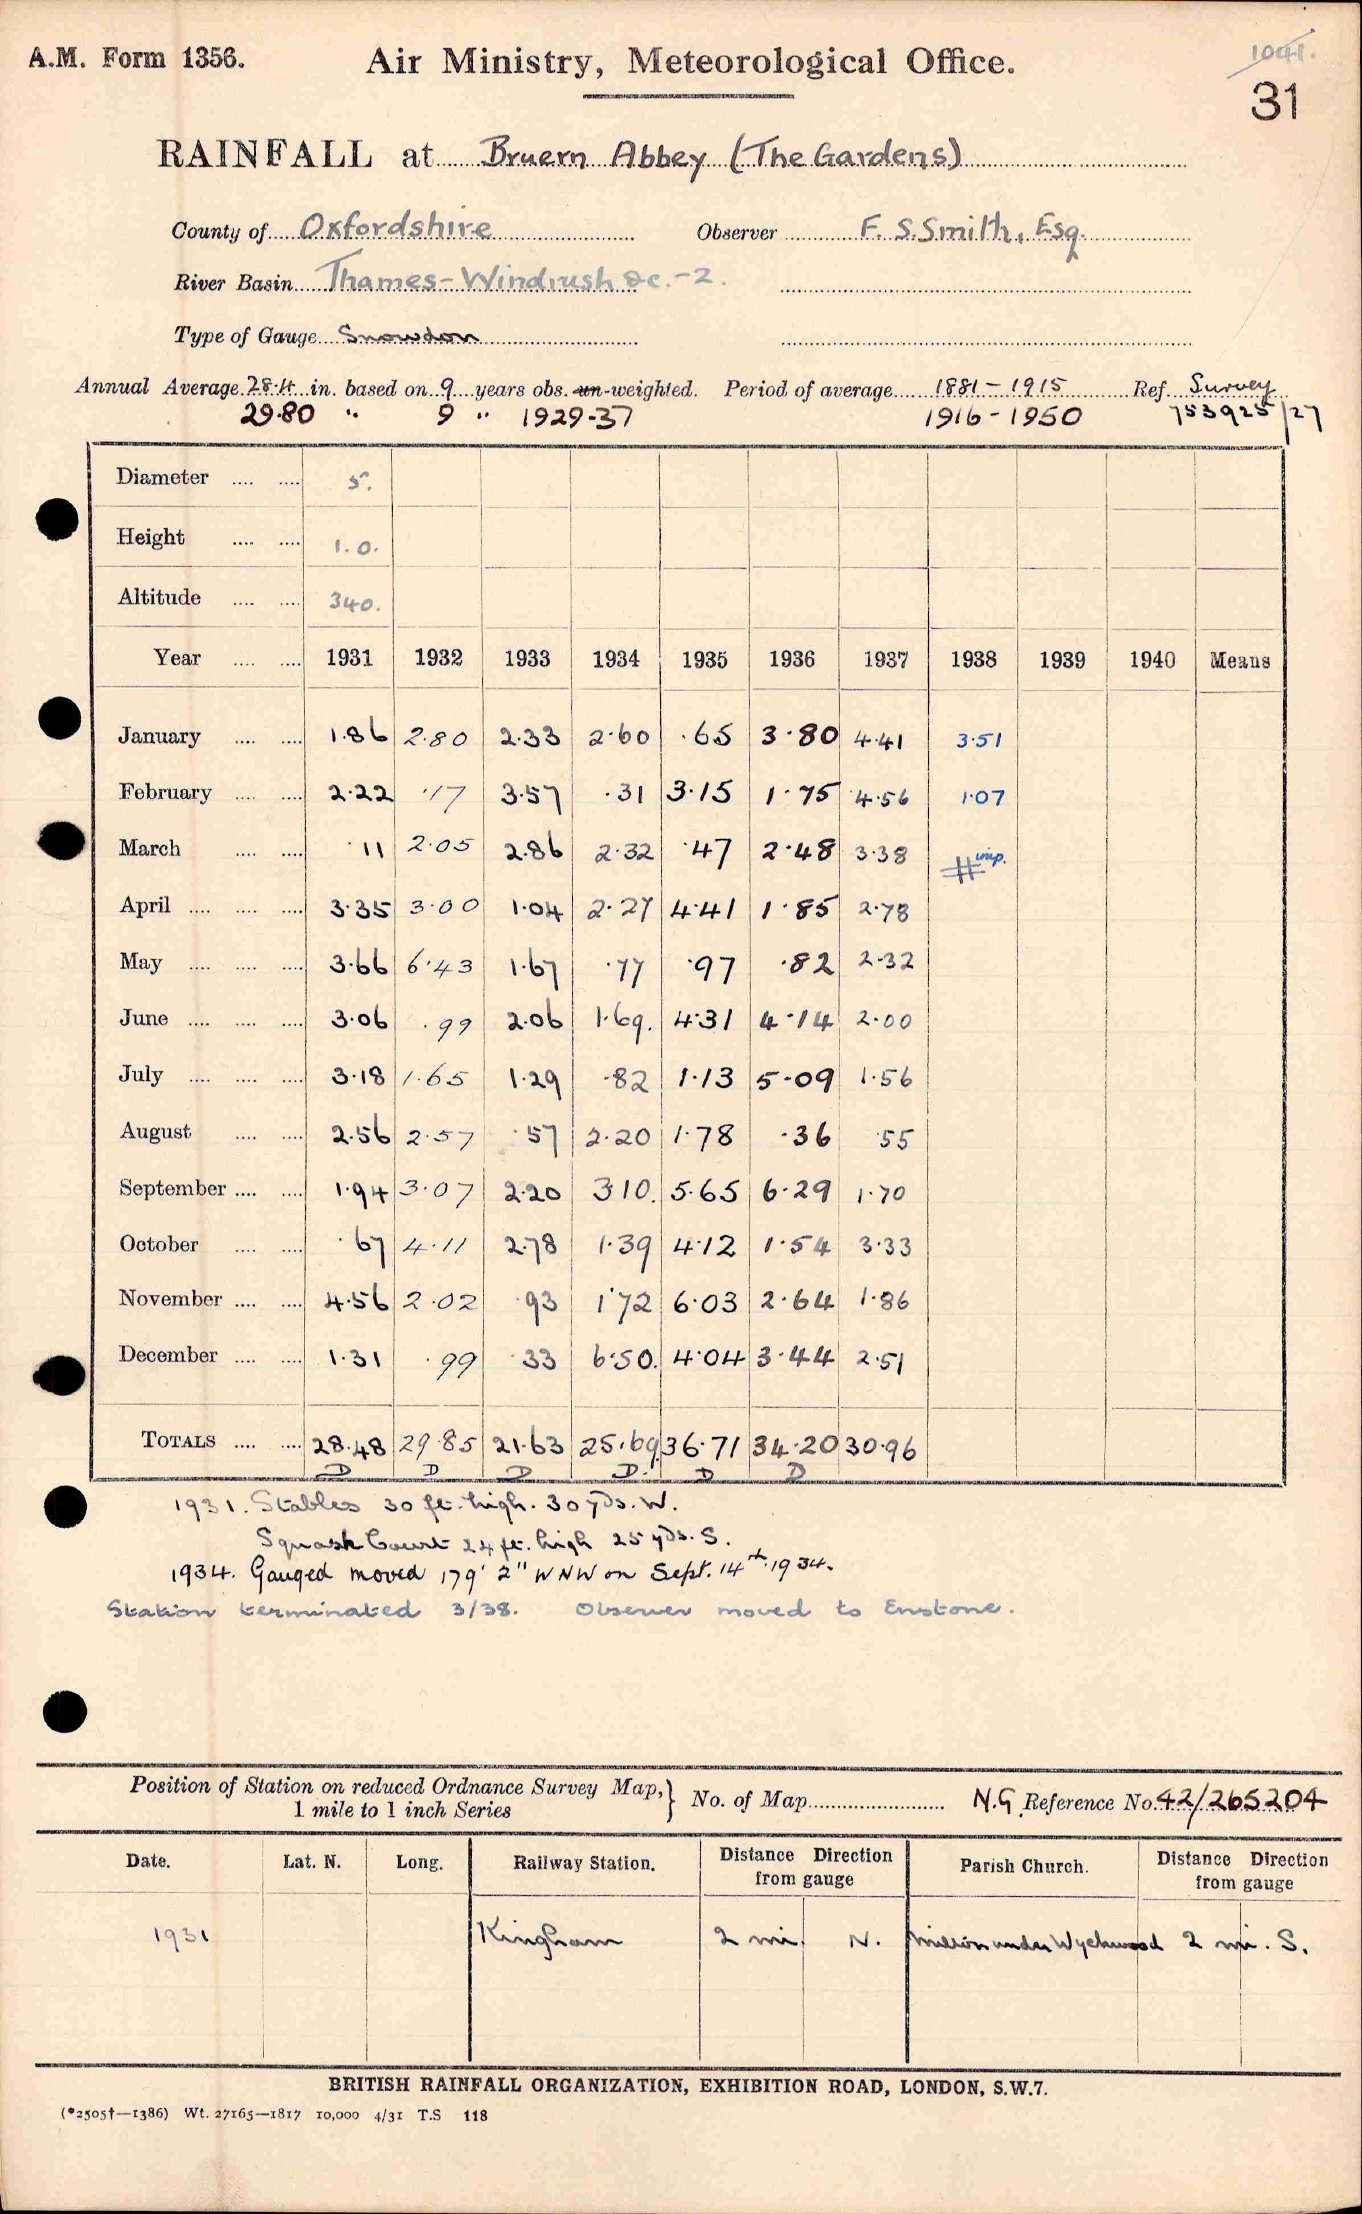 A.M. Form 1356. Air Ministry, Meteorological Office. 1041.
31
RAINFALL at Bruern Abbey (The Gardens)
County of Oxfordshire Observer F. S. Smith, Esq.
River Basin Thames-Windrush &c.-2.
Type of Gauge Snowdon
Annual Average 28.4 in. based on 9 years obs. un-weighted. Period of average 1881-1915 Ref. Survey
29.80 " 9 " 1929-37 1916-1950 753925/27
Diameter .... .... 5.
Height .... .... 1.0.
Altitude .... .... 340.
Year .... .... 1931 1932 1933 1934 1935 1936 1937 1938 1939 1940 Means
January .... .... 1.86 2.80 2.33 2.60 .65 3.80 4.41 3.51
February .... .... 2.22 .17 3.57 .31 3.15 1.75 4.56 1.07
March .... .... .11 2.05 2.86 2.32 .47 2.48 3.38 # imp.
April .... .... .... 3.35 3.00 1.04 2.27 4.41 1.85 2.78
May .... .... .... 3.66 6.43 1.67 .77 .97 .82 2.32
June .... .... .... 3.06 .99 2.06 1.69. 4.31 4.14 2.00
July .... .... .... 3.18 1.65 1.29 .82 1.13 5.09 1.56
August .... .... 2.56 2.57 .57 2.20 1.78 .36 .55
September .... .... 1.94 3.07 2.20 3.10. 5.65 6.29 1.70
October .... .... .67 4.11 2.78 1.39 4.12 1.54 3.33
November .... .... 4.56 2.02 .93 1.72 6.03 2.64 1.86
December .... .... 1.31 .99 .33 6.50. 4.04 3.44 2.51
TOTALS .... .... 28.48 29.85 21.63 25.69. 36.71 34.20 30.96
D D D D. D D
1931. Stables 30 ft. high. 30 yds. W.
Squash Court 24 ft. high 25 yds. S.
1934. Gauged moved 179' 2" WNW on Sept. 14th 1934.
Station terminated 3/38. Observer moved to Enstone.
Position of Station on reduced Ordnance Survey Map, 1 mile to 1 inch Series } No. of Map N.G. Reference No. 42/265204
Date. Lat. N. Long. Railway Station. Distance Direction from gauge Parish Church. Distance Direction from gauge
1931 Kingham 2 mi. N. Milton under Wychwood 2 mi. S.
BRITISH RAINFALL ORGANIZATION, EXHIBITION ROAD, LONDON, S.W.7.
(*2505†—1386) Wt. 27165—1817 10,000 4/31 T.S 118